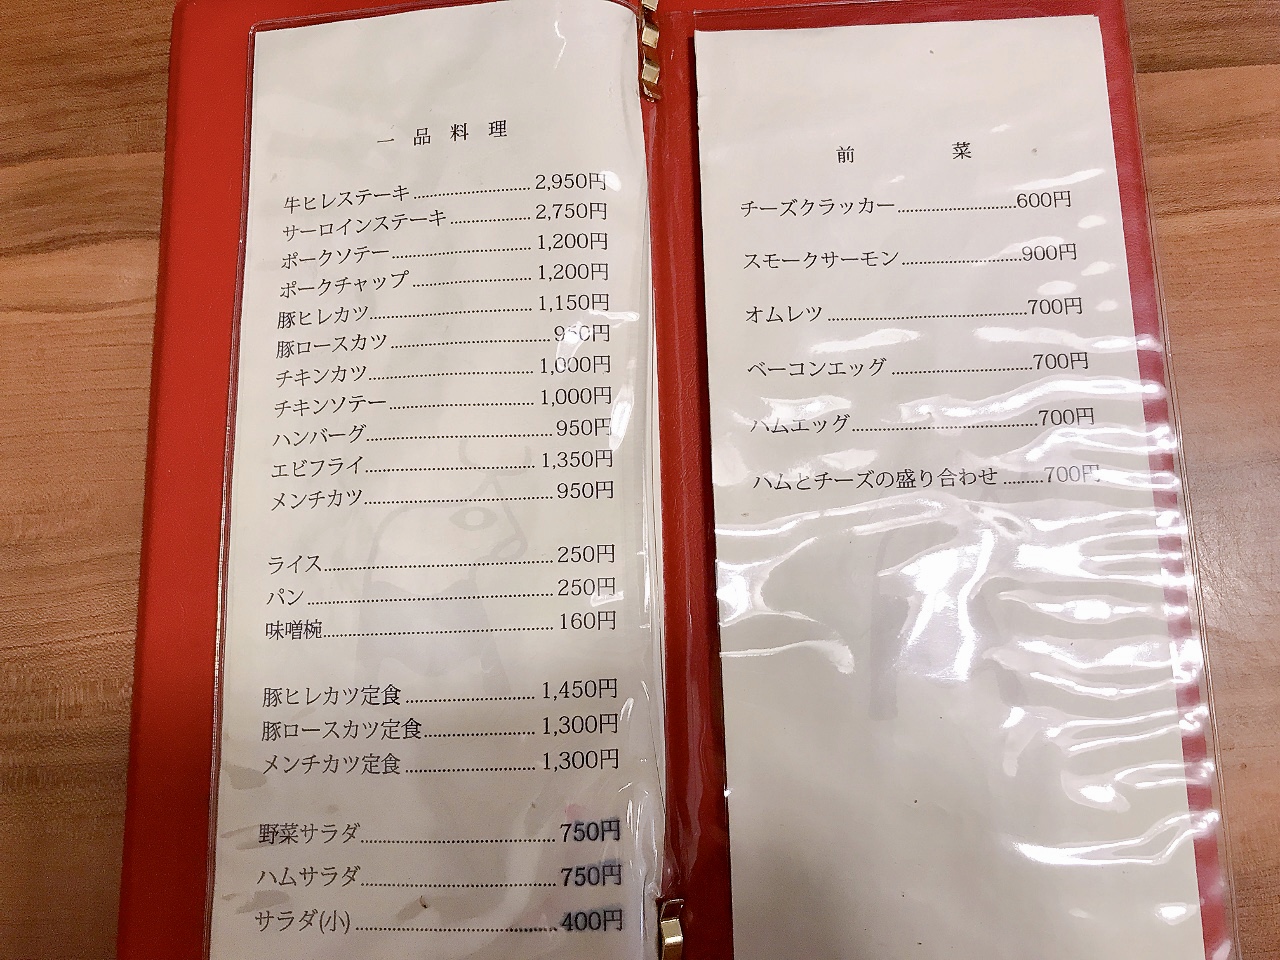 一品料理
牛ヒレステーキ 2,950円
サーロインステーキ 2,750円
ポークソテー 1,200円
ポークチャップ 1,200円
豚ヒレカツ 1,150円
豚ロースカツ 950円
チキンカツ 1,000円
チキンソテー 1,000円
ハンバーグ 950円
エビフライ 1,350円
メンチカツ 950円
ライス 250円
パン 250円
味噌椀 160円
豚ヒレカツ定食 1,450円
豚ロースカツ定食 1,300円
メンチカツ定食 1,300円
野菜サラダ 750円
ハムサラダ 750円
サラダ(小) 400円
前菜
チーズクラッカー 600円
スモークサーモン 900円
オムレツ 700円
ベーコンエッグ 700円
ハムエッグ 700円
ハムとチーズの盛り合わせ 700円